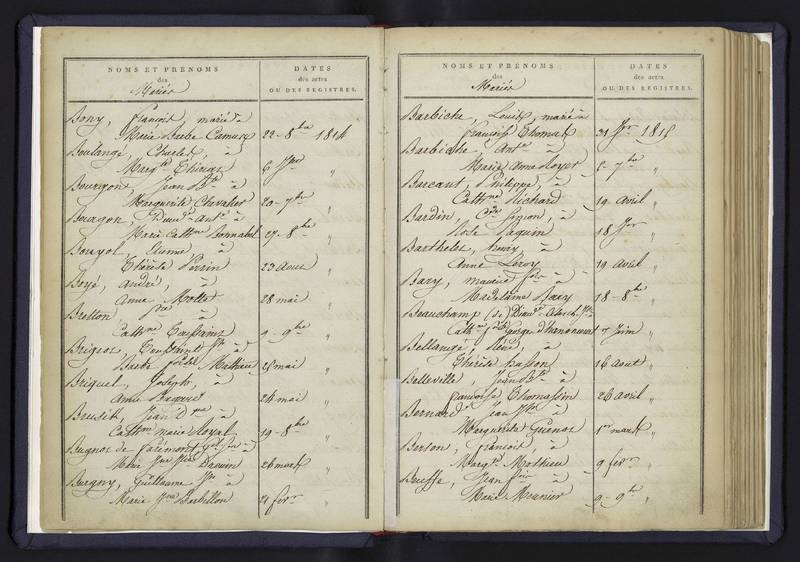 NOMS ET PRÉNOMS
des
Mariés
DATES
des actes
OU DES REGISTRES.
Bony, francois, marié à
Marie Barbe Camus 22 - 8bre 1814
Boulangé, Charles, à
Margte Thiriot 6 "
Bourgon, Jean Bte à
Marguerite Chevalier 20 - 7bre "
Bourgon, Dieudé Ante à
Marie Cathne Bonnabel 27 - 8bre "
Bouyol, Etienne à
Thérèse Perrin 23 Aout "
Boyé, André, à
Anne Mottet 28 mai "
Bretton à
Cathne Toussaint 9 - 9bre "
Brigeot, Toussaint fs à
Barbe Mathieu 28 mai "
Briquel, Joseph, à
Anne 24 mai "
Jean à
Cathne marie Royal 19 - 8bre "
Bugnot de Farémont, à
Marie 26 mars "
Burgny, Guillaume à
Marie Barbillon 21 fevr "
NOMS ET PRÉNOMS
des
Mariés
DATES
des actes
OU DES REGISTRES.
Barbiche, Louis, marié à
francoise Thomas 31 1815
Barbiche, Ante à
Marie Anne Noyer 7bre "
Barcaut, Philippe, à
Cathne Richard 19 Avril "
Bardin, Simon, à
Rose Paquin 18 "
Barthelet, henry, à
Anne Leroy 19 avril "
Bary, maurice à
Madelaine Bary 18 - 8bre "
Beauchamp (de) Dieudé
Cathne d'hannoncourt 7 Juin "
Bellangé, René, à
Thérèse husson 16 Aout "
Belleville, Jean Bte à
francoise Thomassin 26 avril "
Bernard Jean à
Marguerite Guenot 1er mars "
Berton, francois, à
Margte Mathieu 9 fevr "
Beuffe, Jean à
Marie Meunier 9 - 9bre "